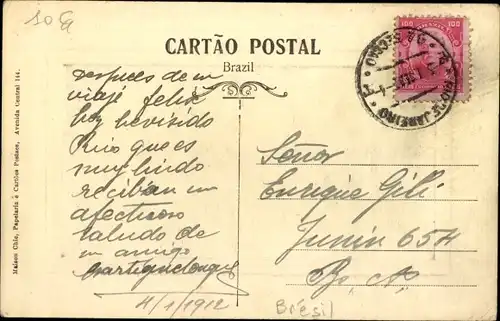 CARTÃO POSTAL
Brazil
100 100
RIO DE JANEIRO
Maison Chic, Papelaria é Cartões Postaes, Avenida Central 144.
Despues de un
viaje feliz
hoy he visto
Rio que es
muy lindo
reciban un
afectuoso
saludo de
un amigo
4/1/1912
Señor
Enrique Gili
Junin 654
Bs. As.
Brésil